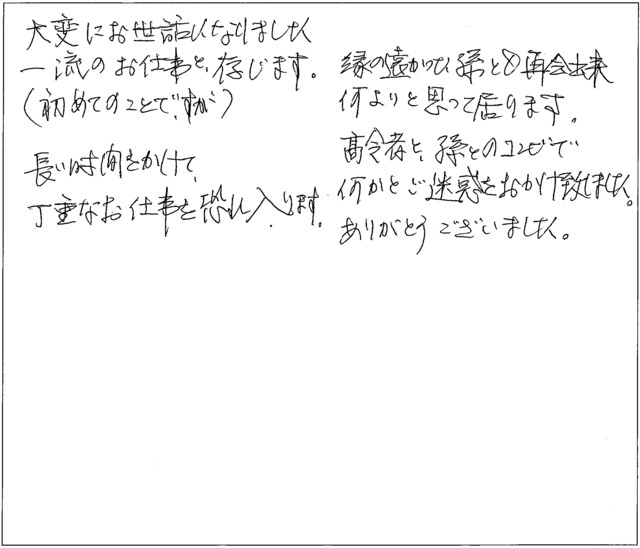 大変にお世話になりました
一流のお仕事と、存じます。
(初めてのことですが)
長い時間をかけて、
丁重なお仕事を恐れ入ります。
縁の遠かった孫とも再会出来
何よりと思って居ります。
高令者と、孫とのコンビで
何かとご迷惑をおかけ致しました。
ありがとうございました。